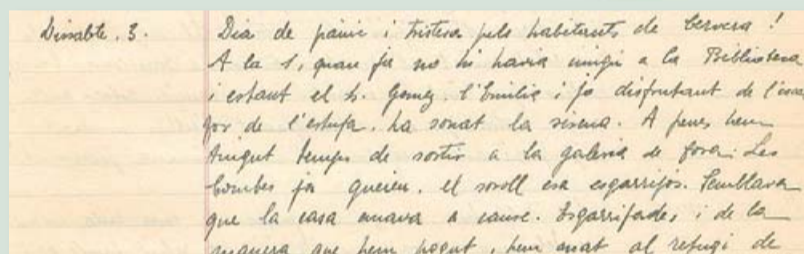 Dissabte. 3. Dia de pànic i tristesa pels habitants de Cervera!
A la 1, quan ja no hi havia ningú a la Biblioteca
i estant el Sr. Gomez, l'Emilia i jo disfrutant de l'esca
for de l'estufa, ha sonat la sirena. A penes hem
tingut temps de sortir a la galeria de fora. Les
bombes ja queien. el soroll era esgarrifós. Semblava
que la casa anava a caure. Esgarrifades, i de la
manera que hem pogut, hem anat al refugi de